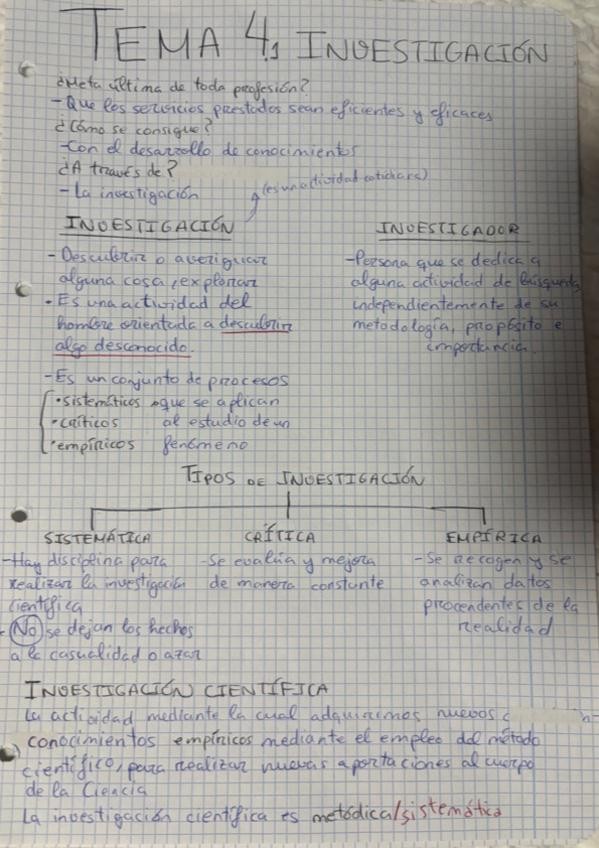 TEMA 4, INVESTIGACIÓN
¿Meta última de toda profesión?
- Que los servicios prestados sean eficientes y eficaces
¿Cómo se consigue?
- Con el desarrollo de conocimientos
¿A través de?
- La investigación
(es una actividad cotidiana)
INVESTIGACIÓN
- Descubrir o averiguar
alguna cosa, explorar
• Es una actividad del
hombre orientada a descubrir
algo desconocido.
- Es un conjunto de procesos
• sistemáticos que se aplican
• críticos al estudio de un
• empíricos fenómeno
INVESTIGADOR
- Persona que se dedica a
alguna actividad de búsqueda
independientemente de su
metodología, propósito e
importancia.
TIPOS DE INVESTIGACIÓN
SISTEMÁTICA
- Hay disciplina para
realizar la investigación
científica
- No se dejan los hechos
a la casualidad o azar
CRÍTICA
- Se evalúa y mejora
de manera constante
EMPÍRICA
- Se recogen y se
analizan datos
procendentes de la
realidad
INVESTIGACIÓN CIENTÍFICA
La actividad mediante la cual adquirimos nuevos
conocimientos empíricos mediante el empleo del método
científico, para realizar nuevas aportaciones al cuerpo
de la Ciencia
La investigación científica es metódica/sistemática